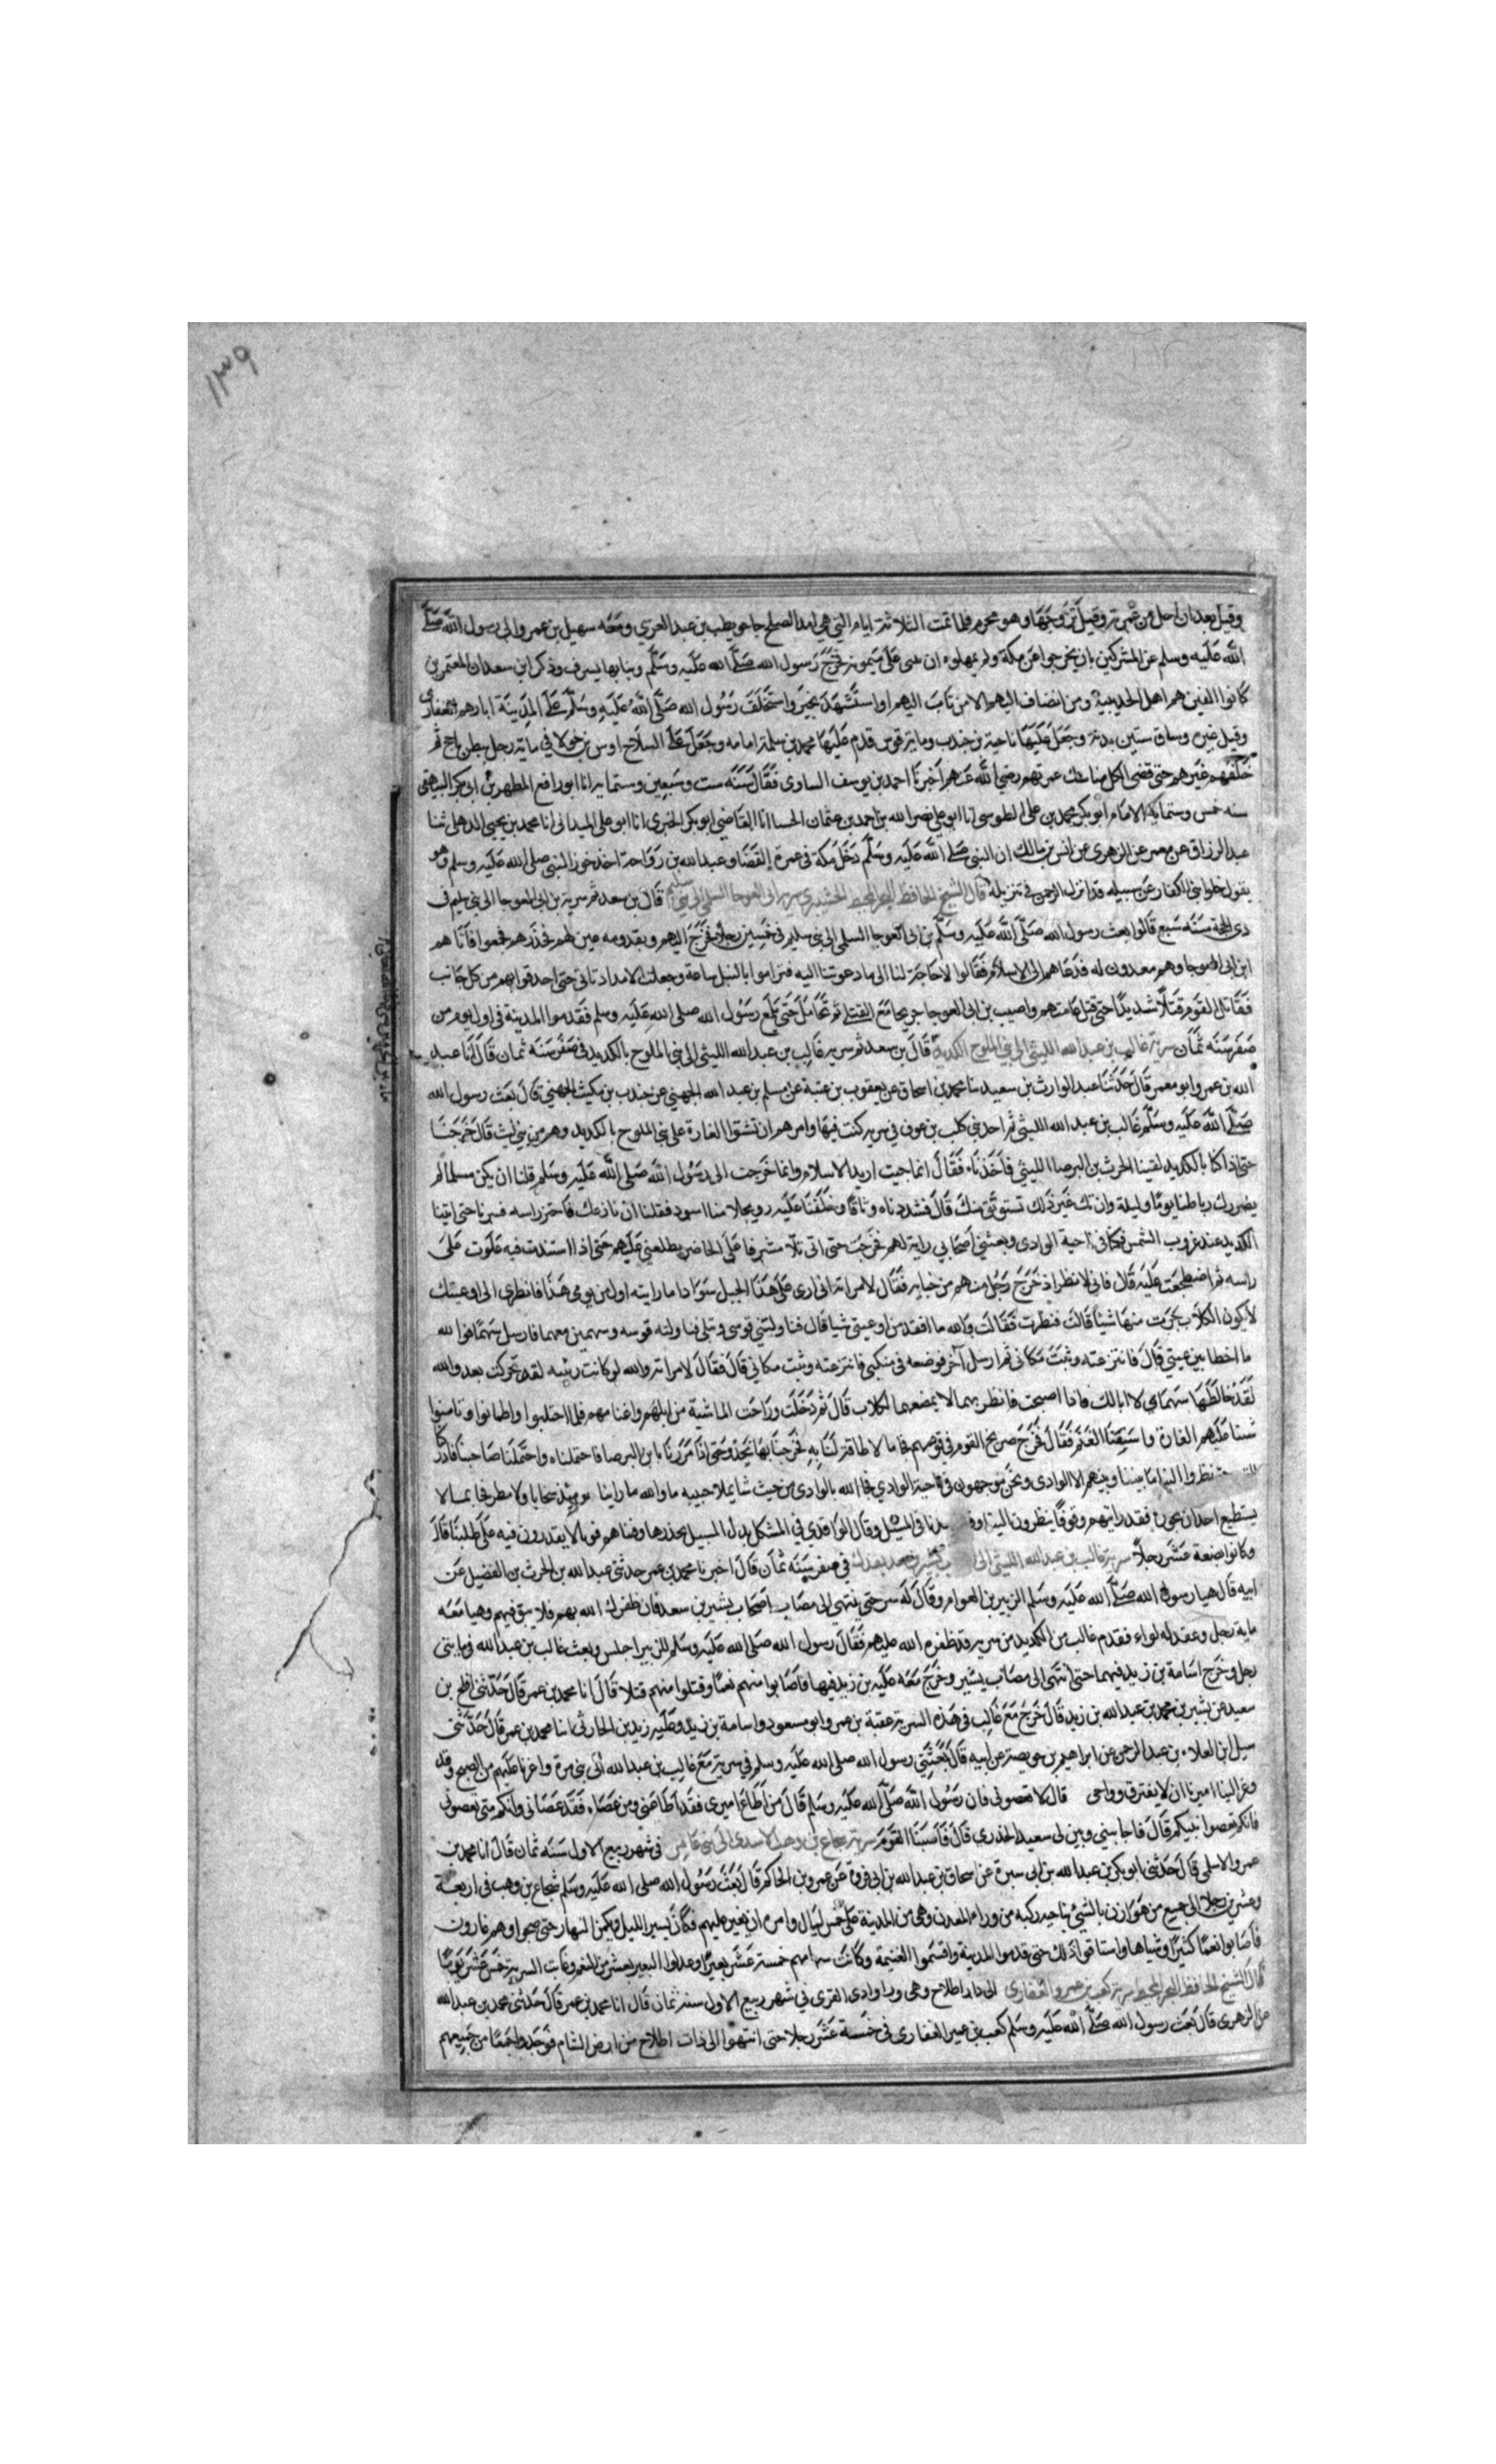 ١٣٩
وقيل بعد ان احل من عمرته وقيل تزوجها وهو محرم فلما تمت الثلاثة ايام التي هي امد الصلح جا حويطب بن عبد العزي ومعه سهيل بن عمرو الى رسول الله صلى
الله عليه وسلم عن المشركين بان يخرجوا عن مكة ولم يمهلوه ان بنى على ميمونة فخرج رسول الله صلى الله عليه وسلم وبنا بها بسرف وذكر ابن سعد ان المعتمرين
كانوا الفين هم اهل الحديبية ومن انضاف اليهم الا من تاب اليهم او استشهد بخيبر واستخلف رسول الله صلى الله عليه وسلم على المدينة ابا رهم الغفاري
وقيل غيره وساق ستين بدنة وجعل عليها ناحية بن جندب ومائة فرس قدم عليها محمد بن سلمة امامه وجعل على السلاح اوس بن خولا في ماية رجل ببطن ياجج ثم
خلفهم غيرهم حتى قضى الكل مناسك عمرتهم رضي الله عنهم اخبرنا احمد بن يوسف الساوى فقال سنة ست وسبعين وستماية انا ابو رافع المطهر بن ابى بكر البيهقى
سنه خمس وستماية الامام ابو بكر محمد بن على الطوسى انا ابو على نصر الله بن احمد بن عثمان الحسا انا القاضي ابو بكر الخيرى انا ابو على الميدانى انا محمد بن يحيى الذهلى ثنا
عبد الرزاق عن معمر عن الزهرى عن انس بن مالك ان النبي صلى الله عليه وسلم دخل مكة فى عمرة القضا وعبد الله بن رواحة اخذ بغرز النبي صلى الله عليه وسلم وهو
يقول خلوا بنى الكفار عن سبيله قد انزل الرحمن في تنزيله قال الشيخ الحافظ البحر المحيط سرية ابن ابى العوجا السلمى الى بنى سليم قال بن سعد ثم سرية بن ابى العوجا الى بني سليم ف
ذى الحجة سنة سبع قالوا بعث رسول الله صلى الله عليه وسلم بن ابى العوجا السلمى الى بنى سليم فى خمسين رجلا فخرج اليهم وبقدومه عين لهم فحذرهم فجمعوا فاتاهم
ابن ابى العوجا وهم معدون له فدعاهم الى الاسلام فقالوا لا حاجة لنا الى ما دعوتنا اليه فتراموا بالنبل ساعة وجعلت الامداد تاتى حتى احدقوا بهم من كل جانب
فقاتل القوم قتالا شديدا حتى قتل عامتهم واصيب بن ابى العوجا جريحا مع القتلى ثم تحامل حتى بلغ رسول الله صلى الله عليه وسلم فقدموا المدينة فى اول يوم من
صفر سنة ثمان سرية غالب بن عبد الله الليثى الى بني الملوح بالكديد قال بن سعد ثم سرية غالب بن عبد الله الليثى الى بني الملوح بالكديد فى صفر سنة ثمان قال انا عبيد
الله بن عمرو ابو معمر قال حدثنا عبد الوارث بن سعيد ثنا محمد بن اسحاق عن يعقوب بن عتبة عن مسلم بن عبد الله الجهني عن جندب بن مكيث الجهني قال بعث رسول الله
صلى الله عليه وسلم غالب بن عبد الله الليثى ثم احد بني كلب بن عوف في سرية كنت فيها وامرهم ان تشنوا الغارة على بنى الملوح بالكديد وهم من بني ليث قال فخرجنا
حتى اذا كنا بالكديد لقينا الحرث بن البرصا الليثي فاخذناه فقال انما جيت اريد الاسلام وانما خرجت الى رسول الله صلى الله عليه وسلم قلنا ان يكن مسلما لم
يضررك رباطنا يوما وليلة وان تك غير ذلك نستوثق منك قال فشددناه وثاقا وخلفنا عليه رويجلا منا اسود فقلنا ان نازعك فاحتز راسه فسرنا حتى اتينا
الكديد عند غروب الشمس فكمنا فى ناحية الوادى وبعثني اصحابي ربية لهم فخرجت حتى اتى تلا مشرفا على الحاضر يطلعني عليهم حتى اذا استندت فيه علوت على
راسه ثم اضطجعت عليه قال فانى لانظر اذ خرج رجل منهم من خبايه فقال لامراته انى ارى على هذا الجبل سوادا ما رايته اول من يومى هذا فانظرى الى اوعيتك
لا يكون الكلاب جرت منها شيئا قالت فنظرت فقالت والله ما افقد من اوعيتى شيا قال فناوليني قوسى ونبلى فناولته قوسه وسهمين معهما فارسل سهما فوالله
ما اخطا بين عينى قال فانتزعته وثبت مكانى ثم ارسل آخر فوضعه فى منكبى فانتزعته وثبت مكاني قال فقال لامراته والله لو كانت ربيه لقد تحركت بعد والله
لقد خالطها سهماى لا ابالك فاذا اصبحت فانظريهما لا يمضغهما الكلاب قال ثم دخلت وراحت الماشية من ابلهم واغنامهم فلما احتلبوا واطمانوا وناموا
شننا عليهم الغارة واستقنا الغنم فقال فخرج صريخ القوم فى قومهم فجا ما لا طاقة لنا به فخرجنا بها نحدوحتى اذا مررنا بابن البرصا فاحتملناه واحتملنا صاحبنا فادركنا
نظروا الينا ما بيننا وبينهم الا الوادى ونحن متوجهون فى ناحية الوادي اذ جا الله بالوادى من حيث شا يملا جنبيه ما والله ما راينا يوميئذ سحابا ولا مطر فجا بما لا
يستطيع احد ان يجوزه فقد رايتهم وقوفا ينظرون الينا فى المشلل وقال الواقدي في المشكل بدل المسيل بحذرها وفناهم فوتا لا يقدرون فيه على طلبنا قال
وكانوا بضعة عشر رجلا سرية غالب بن عبد الله الليثى الى فى صفر سنة ثمان قال اخبرنا محمد بن عمر حدثنى عبد الله بن الحرث بن الفضيل عن
ابيه قال هيا رسول الله صلى الله عليه وسلم الزبير بن العوام وقال له سر حتى ينتهى الى مصاب اصحاب بشير بن سعد فان ظفرك الله بهم فلا تبق فيهم وهيا معه
ماية رجل وعقد له لواء فقدم غالب من الكديد من سرية قد ظفره الله عليهم فقال رسول الله صلى الله عليه وسلم للزبير اجلس وبعث غالب بن عبد الله فى مايتى
رجل وخرج اسامة بن زيد فيهما حتى انتهى الى مصاب بشير وخرج معه علبة بن زيد فيها فاصابوا منهم نعما وقتلوا منهم قتلا قال انا محمد بن عمر قال حدثني افلح بن
سعيد عن بشير بن محمد بن عبد الله بن زيد قال خرج مع غالب فى هذه السرية عقبة بن عمر وابو مسعود واسامة بن زيد وعلبة بن زيد الحارثى انا محمد بن عمر قال حدثنى
سبل ابن العلاء بن عبد الرحمن عن ابراهيم بن حويصة عن ابيه قال بعثنى رسول الله صلى الله عليه وسلم فى سرية مع غالب بن عبد الله الى بني مرة واغرنا عليهم من الصبح وقد
وعز الينا اميرنا ان لا يفترق وواخى قال لا تعصونى فان رسول الله صلى الله عليه وسلم قال من اطاع اميرى فقد اطاعنى ومن عصاه فقد عصانى وانكم متى تعصونى
فانكم تعصوا نبيكم قال فاخا بيني وبين ابى سعيد الخدرى قال فاصبنا القوم سرية شجاع بن وهب الاسدى الى بنى عامر فى شهر ربيع الاول سنة ثمان قال انا محمد بن
عمر والاسلمى قال حدثني ابو بكر بن عبد الله بن ابى سبرة عن اسحاق بن عبد الله بن ابى فروة عن عمرو بن الحاكم قال بعث رسول الله صلى الله عليه وسلم شجاع بن وهب فى اربعة
وعشرين رجلا الى جميع من هوازن بالسيى ناحية ركبه من وراء المعدن وهى من المدينة على خمس ليال وامره ان يغير عليهم فكان يسير الليل ويكمن النهار حتى صبحوا وهم غارون
فاصابوا نعما كثيرا وشياها واستاقوا ذلك حتى قدموا المدينة واقتسموا الغنيمة وكانت سهامهم خمسة عشر بعيرا وعدلوا البعير بعشر من الغنم وغابت السرية خمس عشر يوما
قال الشيخ الحافظ البحر المحيط سرية كعب بن عمرو الغفارى الى ذات اطلاح وهى ورا وادى القرى في شهر ربيع الاول سنة ثمان قال انا محمد بن عمر قال حدثنى محمد بن عبد الله
عن الزهرى قال بعث رسول الله صلى الله عليه وسلم كعب بن عمير الغفارى فى خمسة عشر رجلا حتى انتهوا الى ذات اطلاح من ارض الشام فوجدوا جمعا من جميعهم